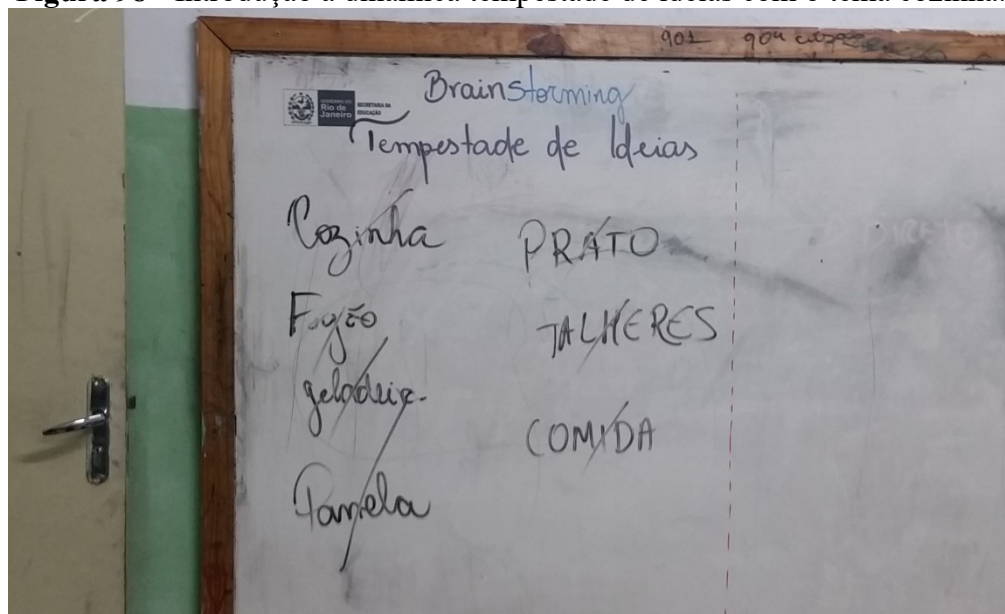 901 904
GOVERNO DO
Rio de
Janeiro
SECRETARIA DE
EDUCAÇÃO
Brainstorming
Tempestade de Ideias
Cozinha
Fogão
geladeira
Panela
PRATO
TALHERES
COMIDA